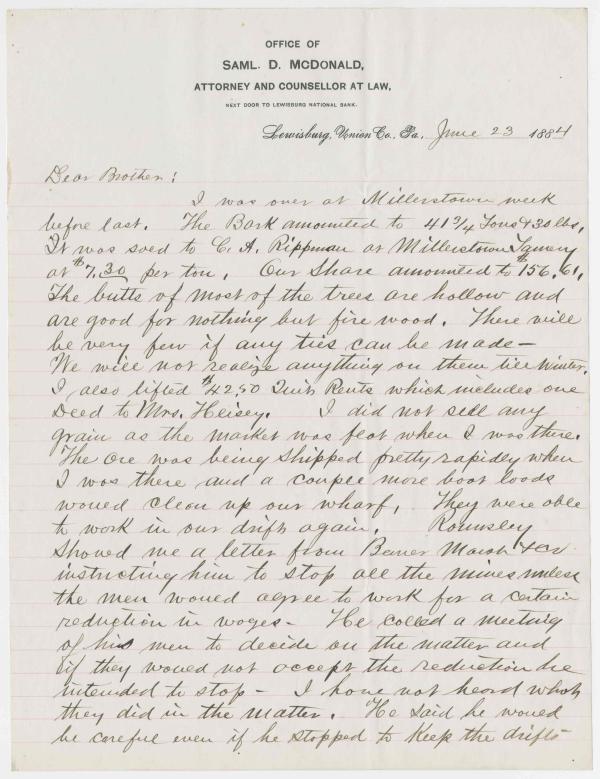 OFFICE OF
SAML. D. McDONALD,
ATTORNEY AND COUNSELLOR AT LAW,
NEXT DOOR TO LEWISBURG NATIONAL BANK.
Lewisburg, Union Co., Pa., June 23 1884
Dear Brother:
I was over at Millerstown week
before last. The Bark amounted to 41 3/4 Tons & 30 lbs.
It was soed to C. A. Rippman at Millerstown Tanery
at $7.30 per ton. Our Share amounted to $156.61.
The butts of most of the trees are hollow and
are good for nothing but fire wood. There will
be very few if any ties can be made—
We will not realize anything on them till Winter.
I also lifted $42.50 Quit Rents which includes one
Deed to Mrs. Heisey. I did not sell any
grain as the market was flat when I was there.
The Ore was being shipped pretty rapidly when
I was there and a couple more boat loads
would clean up our wharf. They were able
to work in our drifts again. Rounsley
showed me a letter from Marsh & Co
instructing him to stop all the mines unless
the men would agree to work for a certain
reduction in wages- He called a meeting
of his men to decide on the matter and
if they would not accept the reduction he
intended to stop- I have not heard what
they did in the matter. He said he would
be careful even if he stopped to keep the drifts